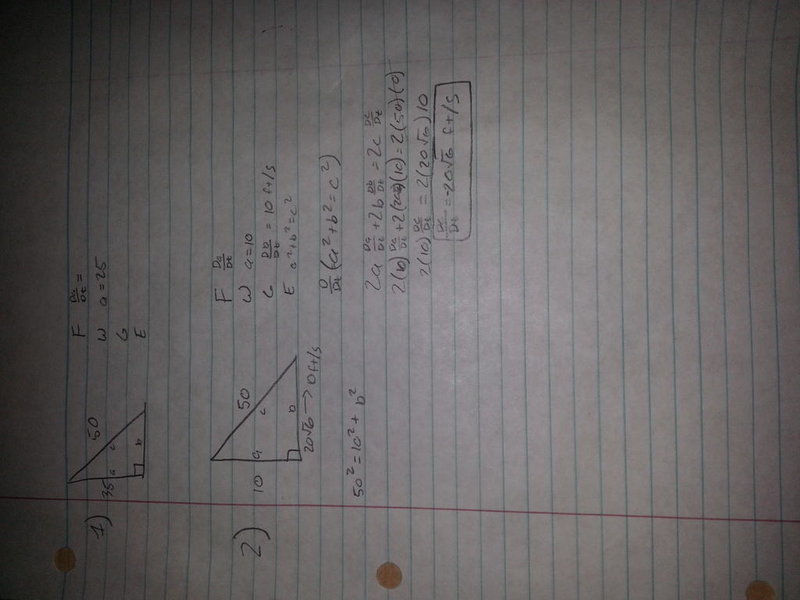 1)
35
a
50
c
b
F Da/Dt =
W a=25
G
E
2)
10
a
50
c
b
20√6 → 10 ft/s
50² = 10² + b²
F Da/Dt
W a=10
G Db/Dt = 10 ft/s
E a²+b²=c²
D/Dt (a²+b²=c²)
2a Da/Dt + 2b Db/Dt = 2c Dc/Dt
2(10) Da/Dt + 2(20√6)(10) = 2(50)(0)
2(10) Dc/Dt = 2(20√6)10
Dc/Dt = -20√6 ft/s